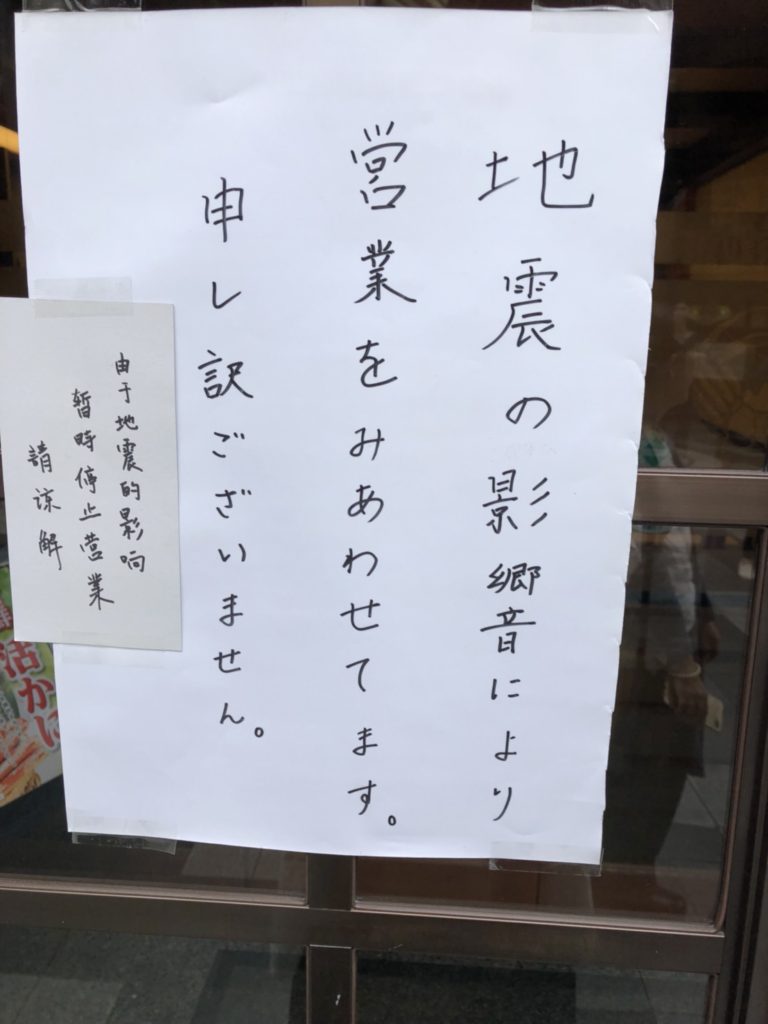 地震の影響により
営業をみあわせてます。
申し訳ございません。
由于地震的影响
暫時停止営業
請谅解
活かに